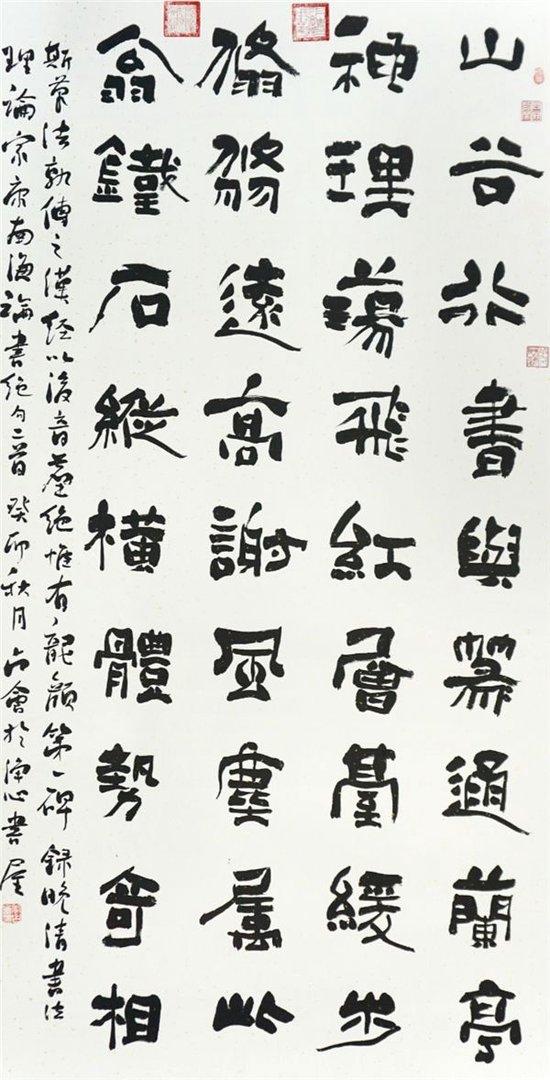 山谷行書與篆通蘭亭
神理蕩飛紅層臺緩步
翛翛遠高謝風塵屬此
翁鐵石縱橫體勢奇相
斯筆法孰傳之漢經以後音塵絕惟有龍顏第一碑 錄晚清書法
理論家康南海論書絕句二首 癸卯秋月 會於淨心書屋